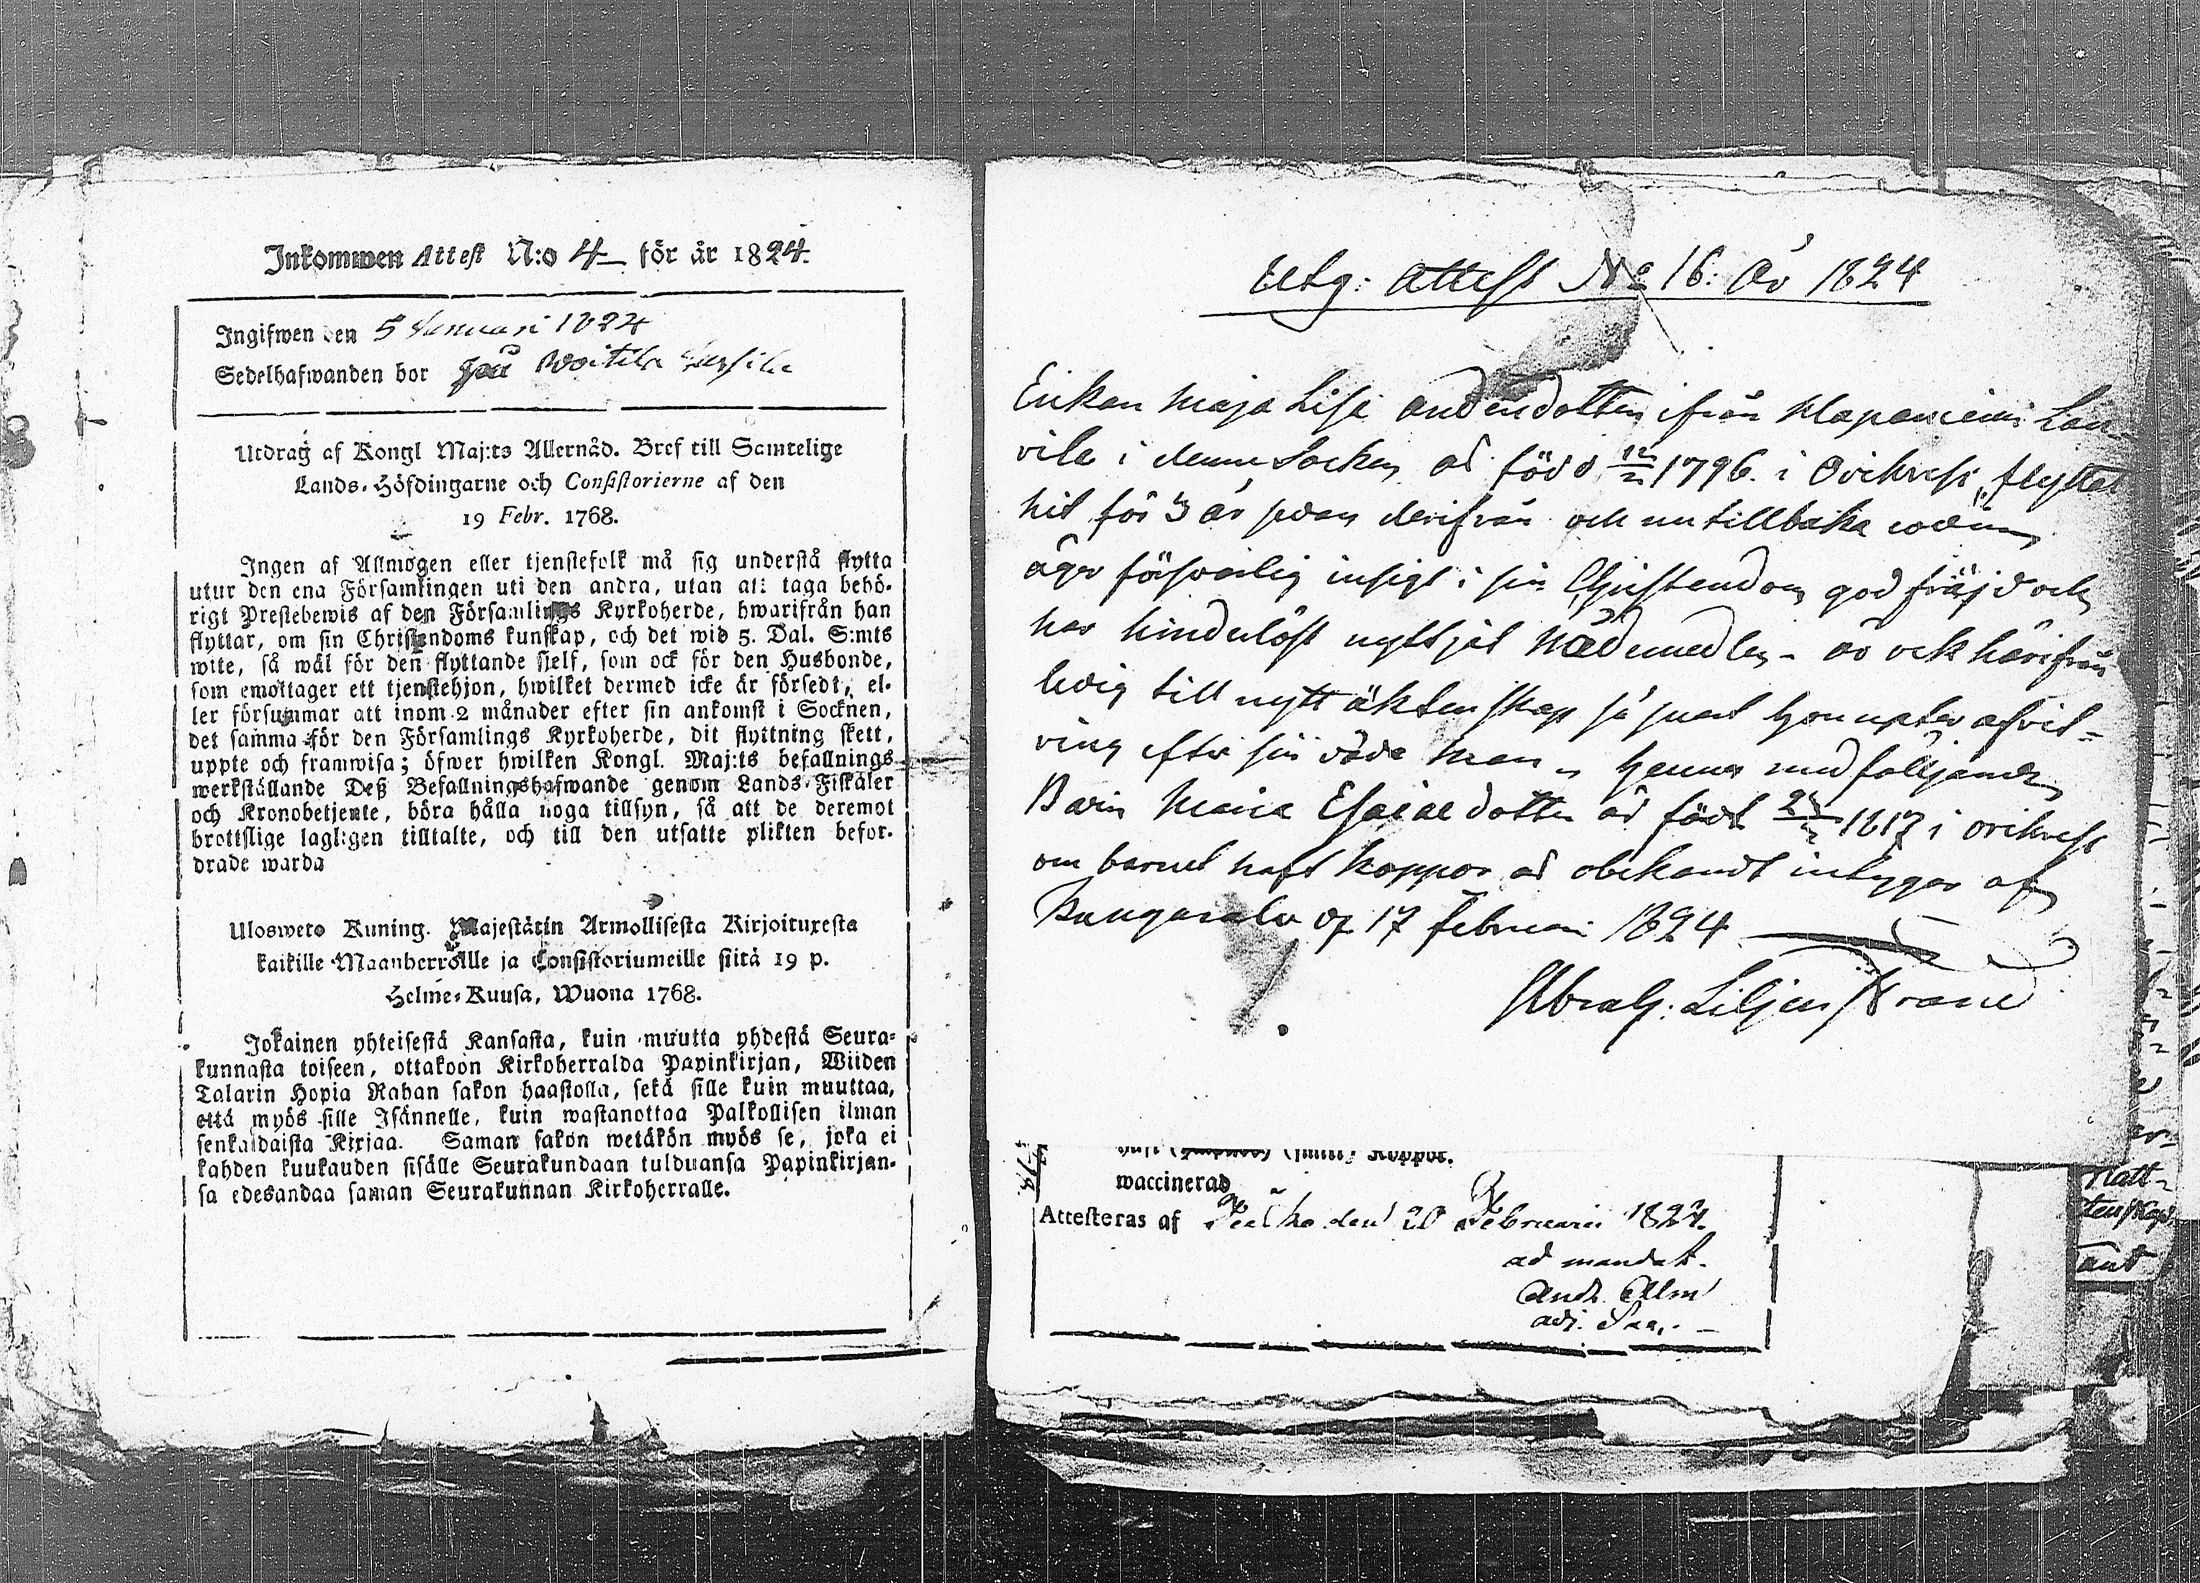 Inkommen Attest N:o 4 för år 1824.
Ingifwen den 5 Januari 1824
Sedelhafwanden bor Woitila
Utdrag af Kongl Maj:ts Allernåd. Bref till Samtelige
Lands-Höfdingarne och Consistorierne af den
19 Febr. 1768.
Ingen af Allmogen eller tjenstefolk må sig understå flytta
utur den ena Församlingen uti den andra, utan att taga behö-
rigt Prestebewis af den Församlings Kyrkoherde, hwarifrån han
flyttar, om sin Christendoms kunskap, och det wid 5. Dal. S:mts
wite, så wäl för den flyttande sjelf, som ock för den Husbonde,
som emottager ett tjenstehjon, hwilket dermed icke är försedt, el-
ler försummar att inom 2 månader efter sin ankomst i Socknen,
det samma för den Församlings Kyrkoherde, dit flyttning skett,
uppte och framwisa; öfwer hwilken Kongl. Maj:ts befallnings
werkställande Deß Befallningshafwande genom Lands-Fiskäler
och Kronobetjente, böra hålla noga tillsyn, så att de deremot
brottslige lagligen tilltalte, och till den utsatte plikten befor-
drade warda
Ulosweto Kuning. Majestätin Armollisesta Kirjoituxesta
kaikille Maanherroille ja Consistoriumeille siitä 19 p.
Helme-Kuusa, Wuona 1768.
Jokainen yhteisestä Kansasta, kuin muutta yhdestä Seura-
kunnasta toiseen, ottakoon Kirkoherralda Papinkirjan, Wiiden
Talarin Hopia Rahan sakon haastolla, sekä sille kuin muuttaa,
että myös sille Isännelle, kuin wastanottaa Palkollisen ilman
senkaldaista Kirjaa. Saman sakon wetäkön myös se, joka ei
kahden kuukauden sisälle Seurakundaan tulduansa Papinkirjan-
sa edesandaa saman Seurakunnan Kirkoherralle.
Utg: Attest No 16: År 1824
Enkan Maja Lisa Andersdotter ifrån Haapaniemi Lau-
vila i denna Socken är född 1796. i Orihvesi, flyttat
hit för 3 år sedan derifrån och nu tillbaka
äger försvarlig insigt i sin Christendom god fräjd och
har hinderlöst nyttjat Nådemedlen - är ock härifrån
ledig till nytt äktenskap så snart hon upter afvit-
ring efter sin döda Man - hennes medföljande
Barn Maria Esaiaedotter är född 1817 i orihvesi
om barnet haft koppor är obekandt intygar af
Kangasala d. 17 februari 1824
Abrah: Liljenstrand
waccinerad
Attesteras af den 20 Februarii 1824.
ad mandat.
Andr. Alm
adj. Sac. -